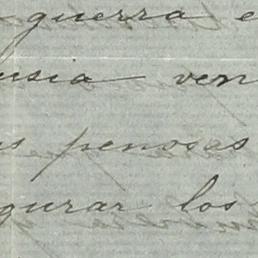 guerra e
usia ven
s penosas
gurar los